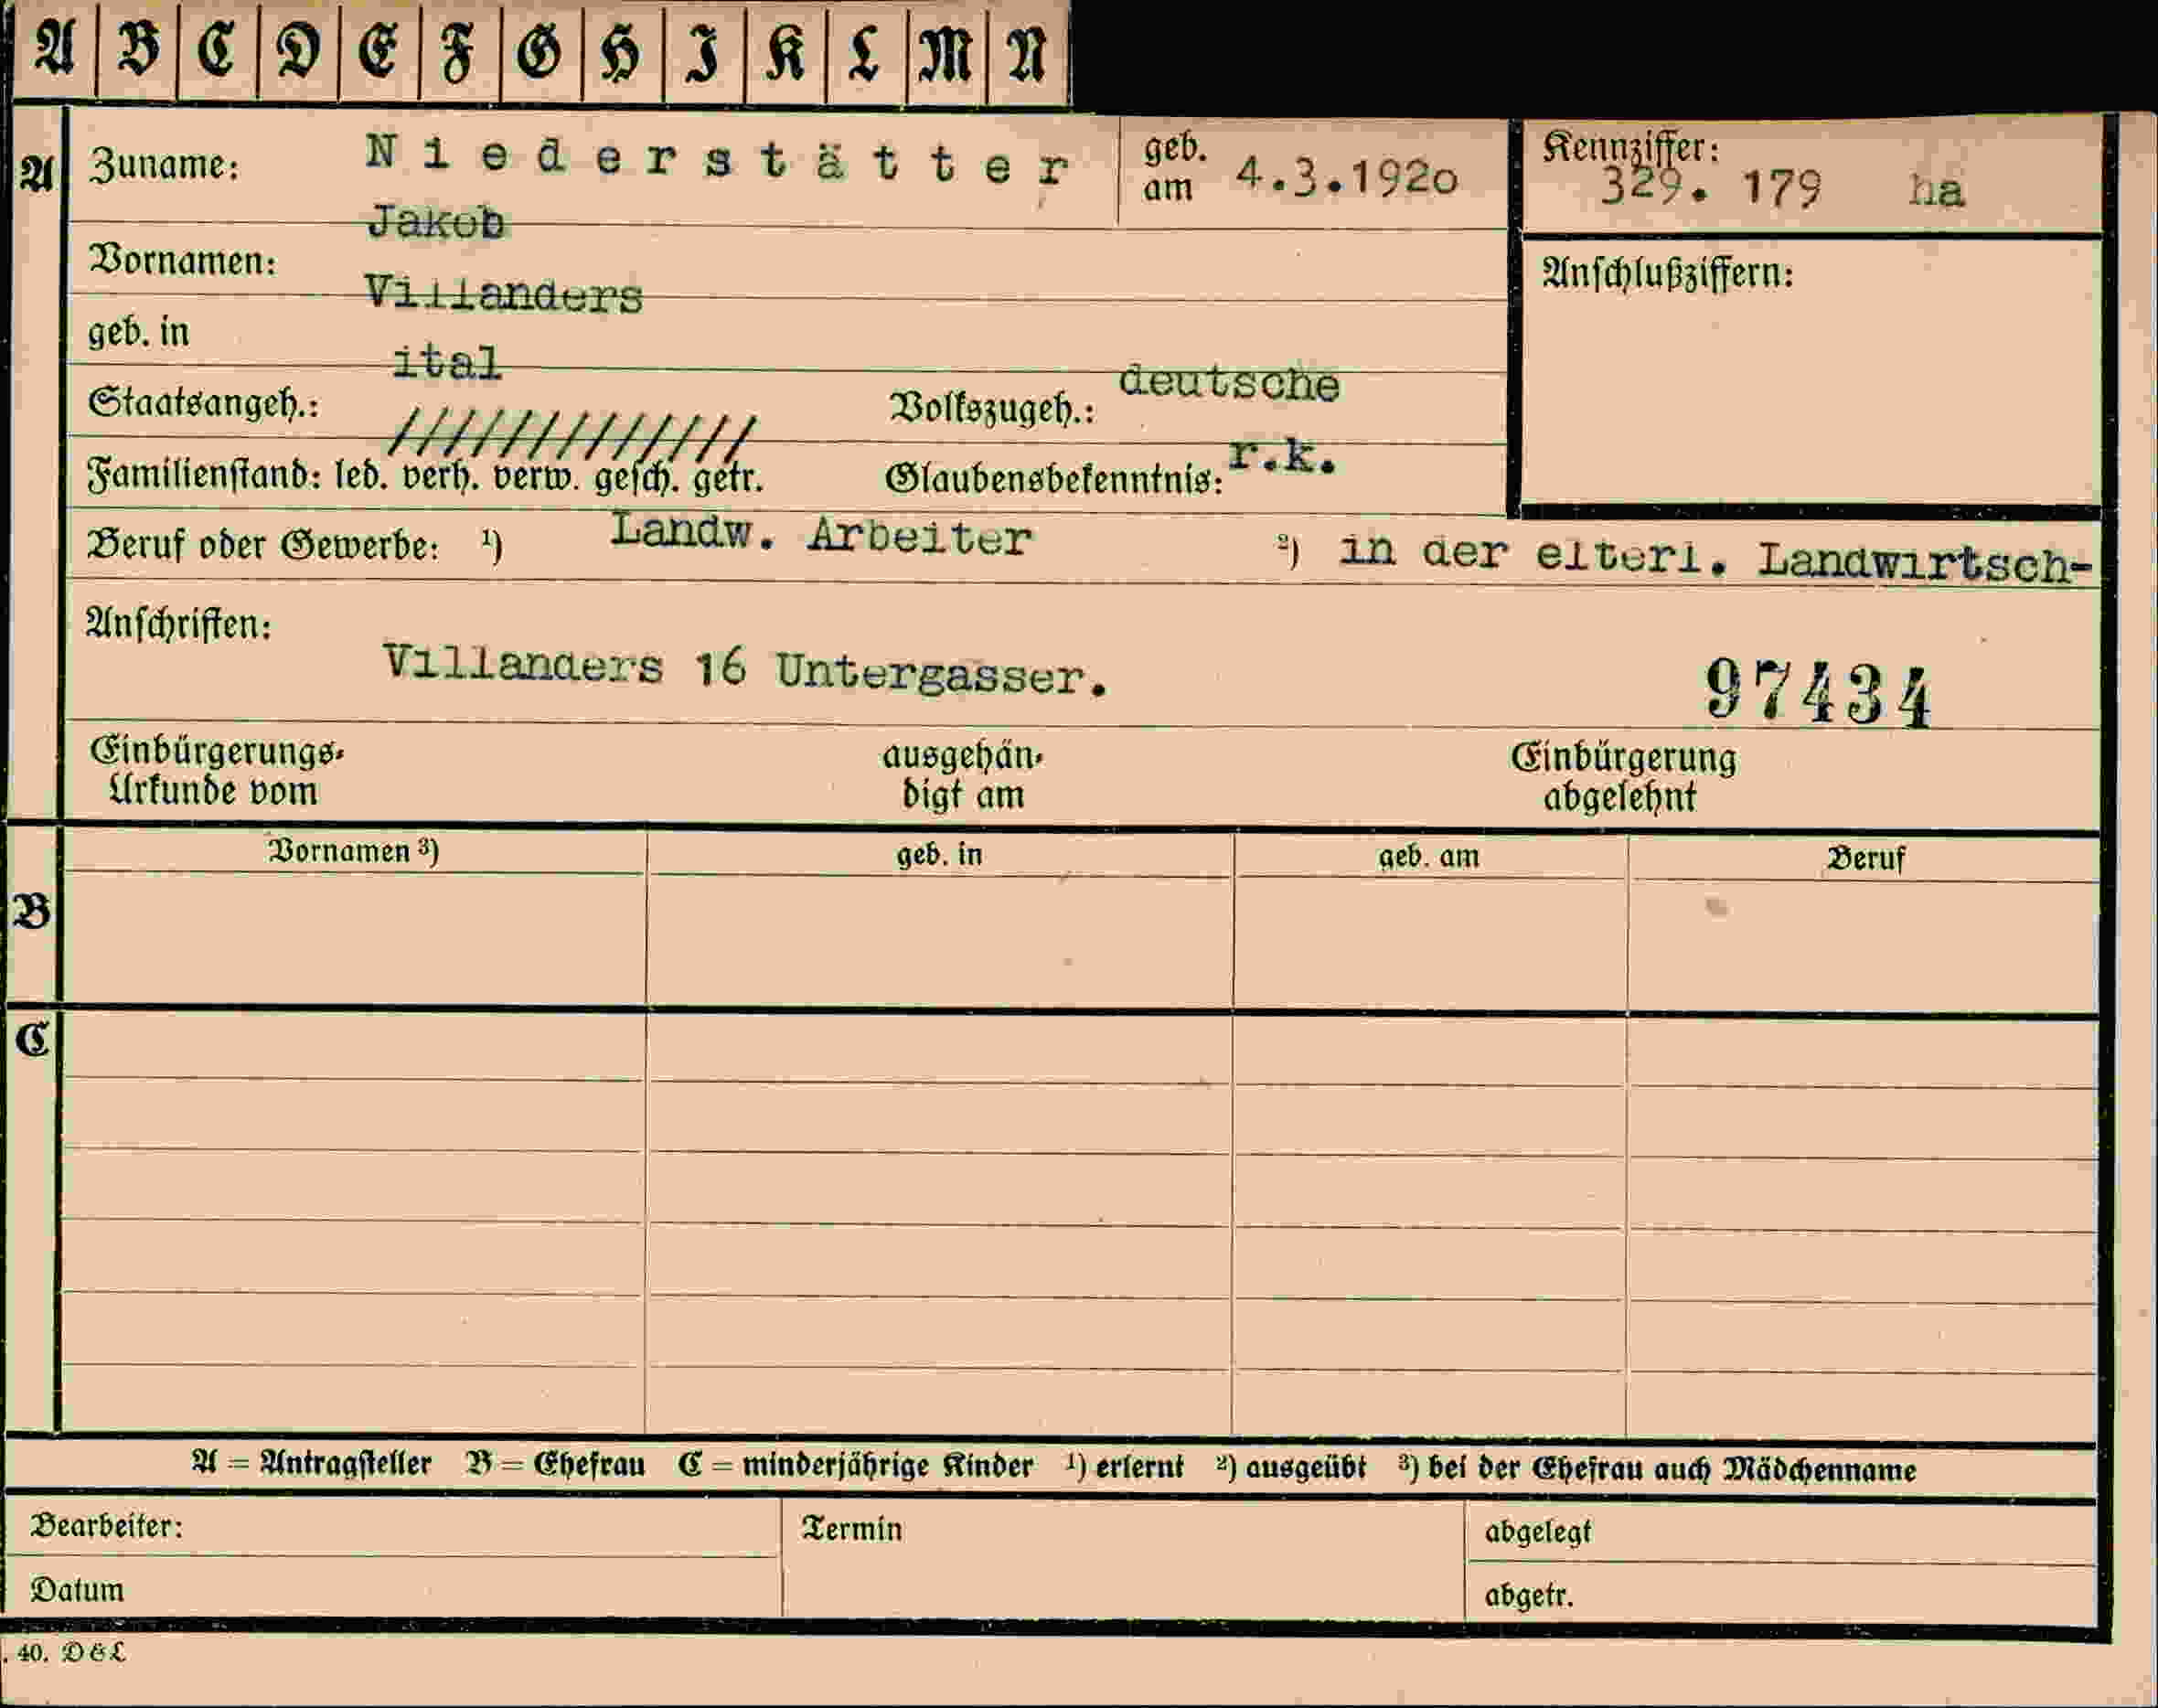 A B C D E F G H I K L M N
A Zuname: Niederstätter geb. am 4.3.1920 Kennziffer: 329. 179 ha
Vornamen: Jakob Anschlußziffern:
geb. in Villanders
Staatsangeh.: ital Volkszugeh.: deutsche
/////////////
Familienstand: led. verh. verw. gesch. getr. Glaubensbekenntnis: r.k.
Beruf oder Gewerbe: 1) Landw. Arbeiter 2) in der elterl. Landwirtsch-
Anschriften:
Villanders 16 Untergasser. 97434
Einbürgerungs-Urkunde vom ausgehändigt am Einbürgerung abgelehnt
Vornamen 3) geb. in geb. am Beruf
B
C
A = Antragsteller B = Ehefrau C = minderjährige Kinder 1) erlernt 2) ausgeübt 3) bei der Ehefrau auch Mädchenname
Bearbeiter: Termin abgelegt
Datum abgetr.
. 40. D & L